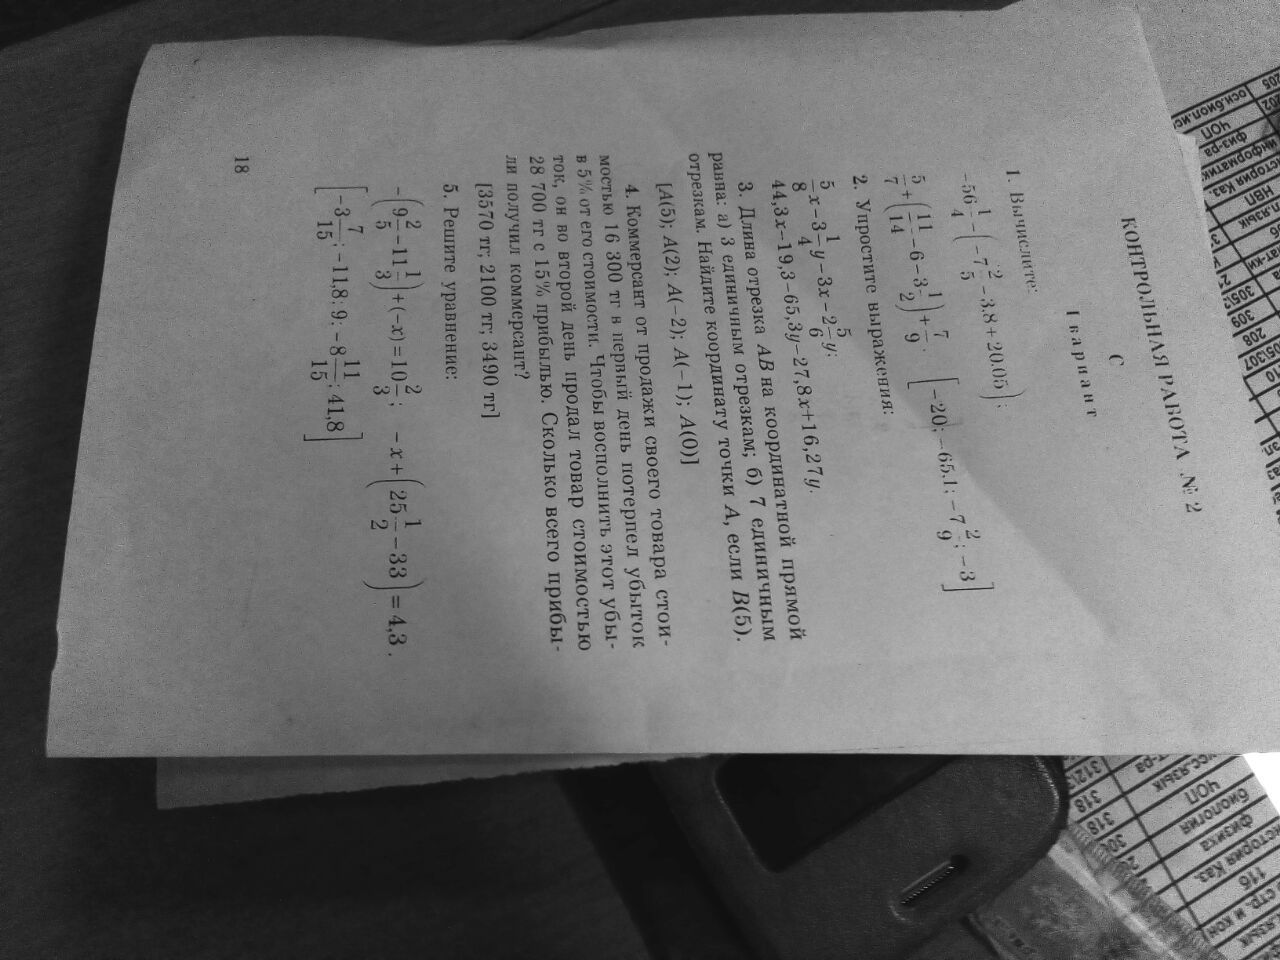 КОНТРОЛЬНАЯ РАБОТА № 2
С
I вариант
1. Вычислите:
-56 1/4 - (-7 2/5 - 3.8 + 20.05);
5/7 + (11/14 - 6 - 3 1/2) + 7/9. [-20; -65.1; -7 2/9; -3]
2. Упростите выражения:
5/8 x - 3 1/4 y - 3x - 2 5/6 y;
44,3x - 19,3 - 65,3y - 27,8x + 16,27y.
3. Длина отрезка AB на координатной прямой
равна: а) 3 единичным отрезкам; б) 7 единичным
отрезкам. Найдите координату точки A, если B(5).
[A(5); A(2); A(-2); A(-1); A(0)]
4. Коммерсант от продажи своего товара стои-
мостью 16 300 тг в первый день потерпел убыток
в 5% от его стоимости. Чтобы восполнить этот убы-
ток, он во второй день продал товар стоимостью
28 700 тг с 15% прибылью. Сколько всего прибы-
ли получил коммерсант?
[3570 тг; 2100 тг; 3490 тг]
5. Решите уравнение:
-(9 2/5 - 11 1/3) + (-x) = 10 2/3; -x + (25 1/2 - 33) = 4,3.
[-3 7/15; -11,8; 9; -8 11/15; 41,8]
18
205
осн.биол.
202
ЧОП
физ-ра
информатик
история Каз.
НВП
309
208
10
312
318
318
ЧОП
биология
физика
история Каз.
11б